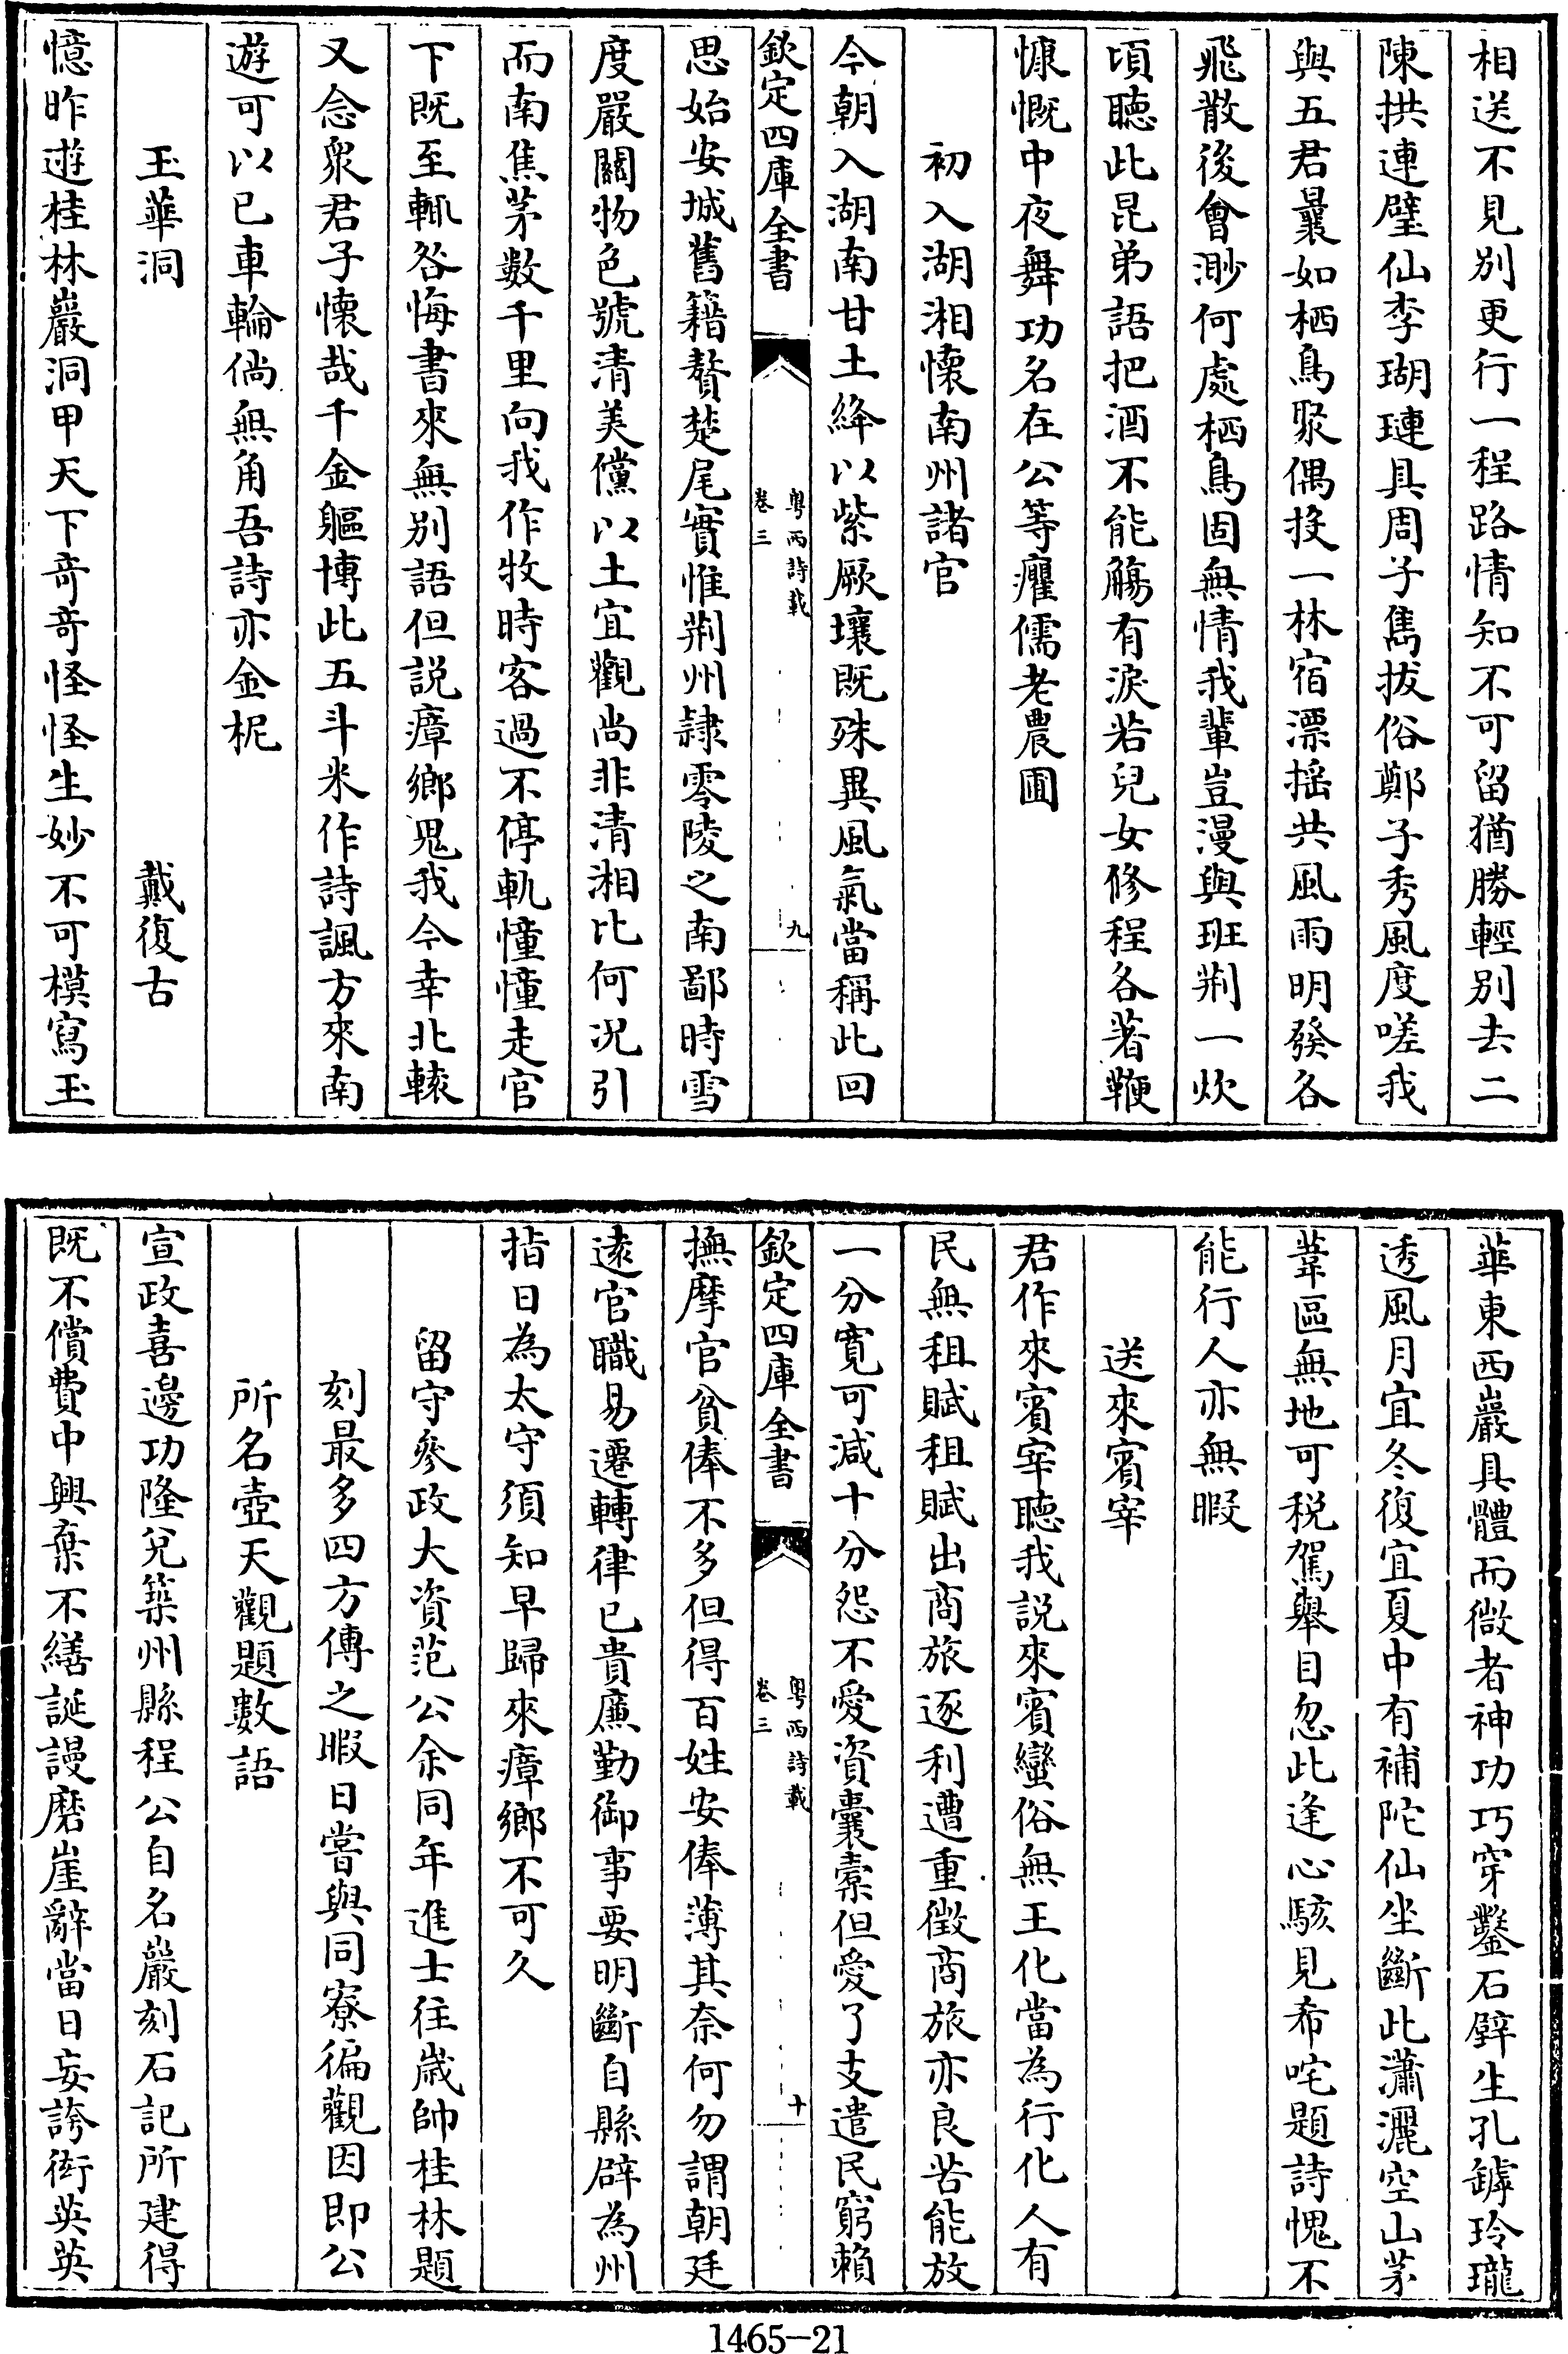 相送不見別更行一程路情知不可留猶勝輕別去二
陳拱連璧仙李瑚璉具周子雋拔俗鄭子秀風度嗟我
與五君曩如栖鳥聚偶投一林宿漂揺共風雨明發各
飛散後會渺何處栖鳥固無情我輩豈漫與班荆一炊
頃聽此昆弟語把酒不能觴有淚若兒女修程各著鞭
慷慨中夜舞功名在公等癯儒老農圃
初入湖湘懷南州諸官
今朝入湖南甘土絳以紫厥壤既殊異風氣當稱此回
欽定四庫全書
粤西詩載
卷三
九
思始安城舊籍贅楚尾實惟荆州隷零陵之南鄙時雪
度嚴關物色號清美儻以土宜觀尚非清湘比何况引
而南焦茅數千里向我作牧時客過不停軌憧憧走官
下既至輒咎悔書來無別語但説瘴鄉鬼我今幸北轅
又念衆君子懷哉千金軀博此五斗米作詩諷方來南
遊可以已車輪倘無角吾詩亦金柅
玉華洞
戴復古
憶昨遊桂林巖洞甲天下竒竒怪怪生妙不可模寫玉
華東西巖具體而微者神功巧穿鑿石壁生孔罅玲瓏
透風月宜冬復宜夏中有補陀仙坐斷此瀟灑空山茅
葦區無地可税駕舉目忽此逢心駭見希咤題詩愧不
能行人亦無暇
送來賓宰
君作來賓宰聽我説來賓蠻俗無王化當為行化人有
民無租賦租賦出商旅逐利遭重徵商旅亦良苦能放
一分寛可減十分怨不愛資囊橐但愛了支遣民窮賴
欽定四庫全書
粤西詩載
卷三
十
撫摩官貧俸不多但得百姓安俸薄其奈何勿謂朝廷
逺官職易遷轉律已貴亷勤御事要明斷自縣辟為州
指日為太守須知早歸來瘴鄉不可久
留守參政大資范公余同年進士往歳帥桂林題
刻最多四方傳之暇日嘗與同寮徧觀因即公
所名壺天觀題數語
宣政喜邊功隆兊築州縣程公自名巖刻石記所建得
既不償費中興棄不繕誕謾磨崖辭當日妄誇衒英英
1465-21